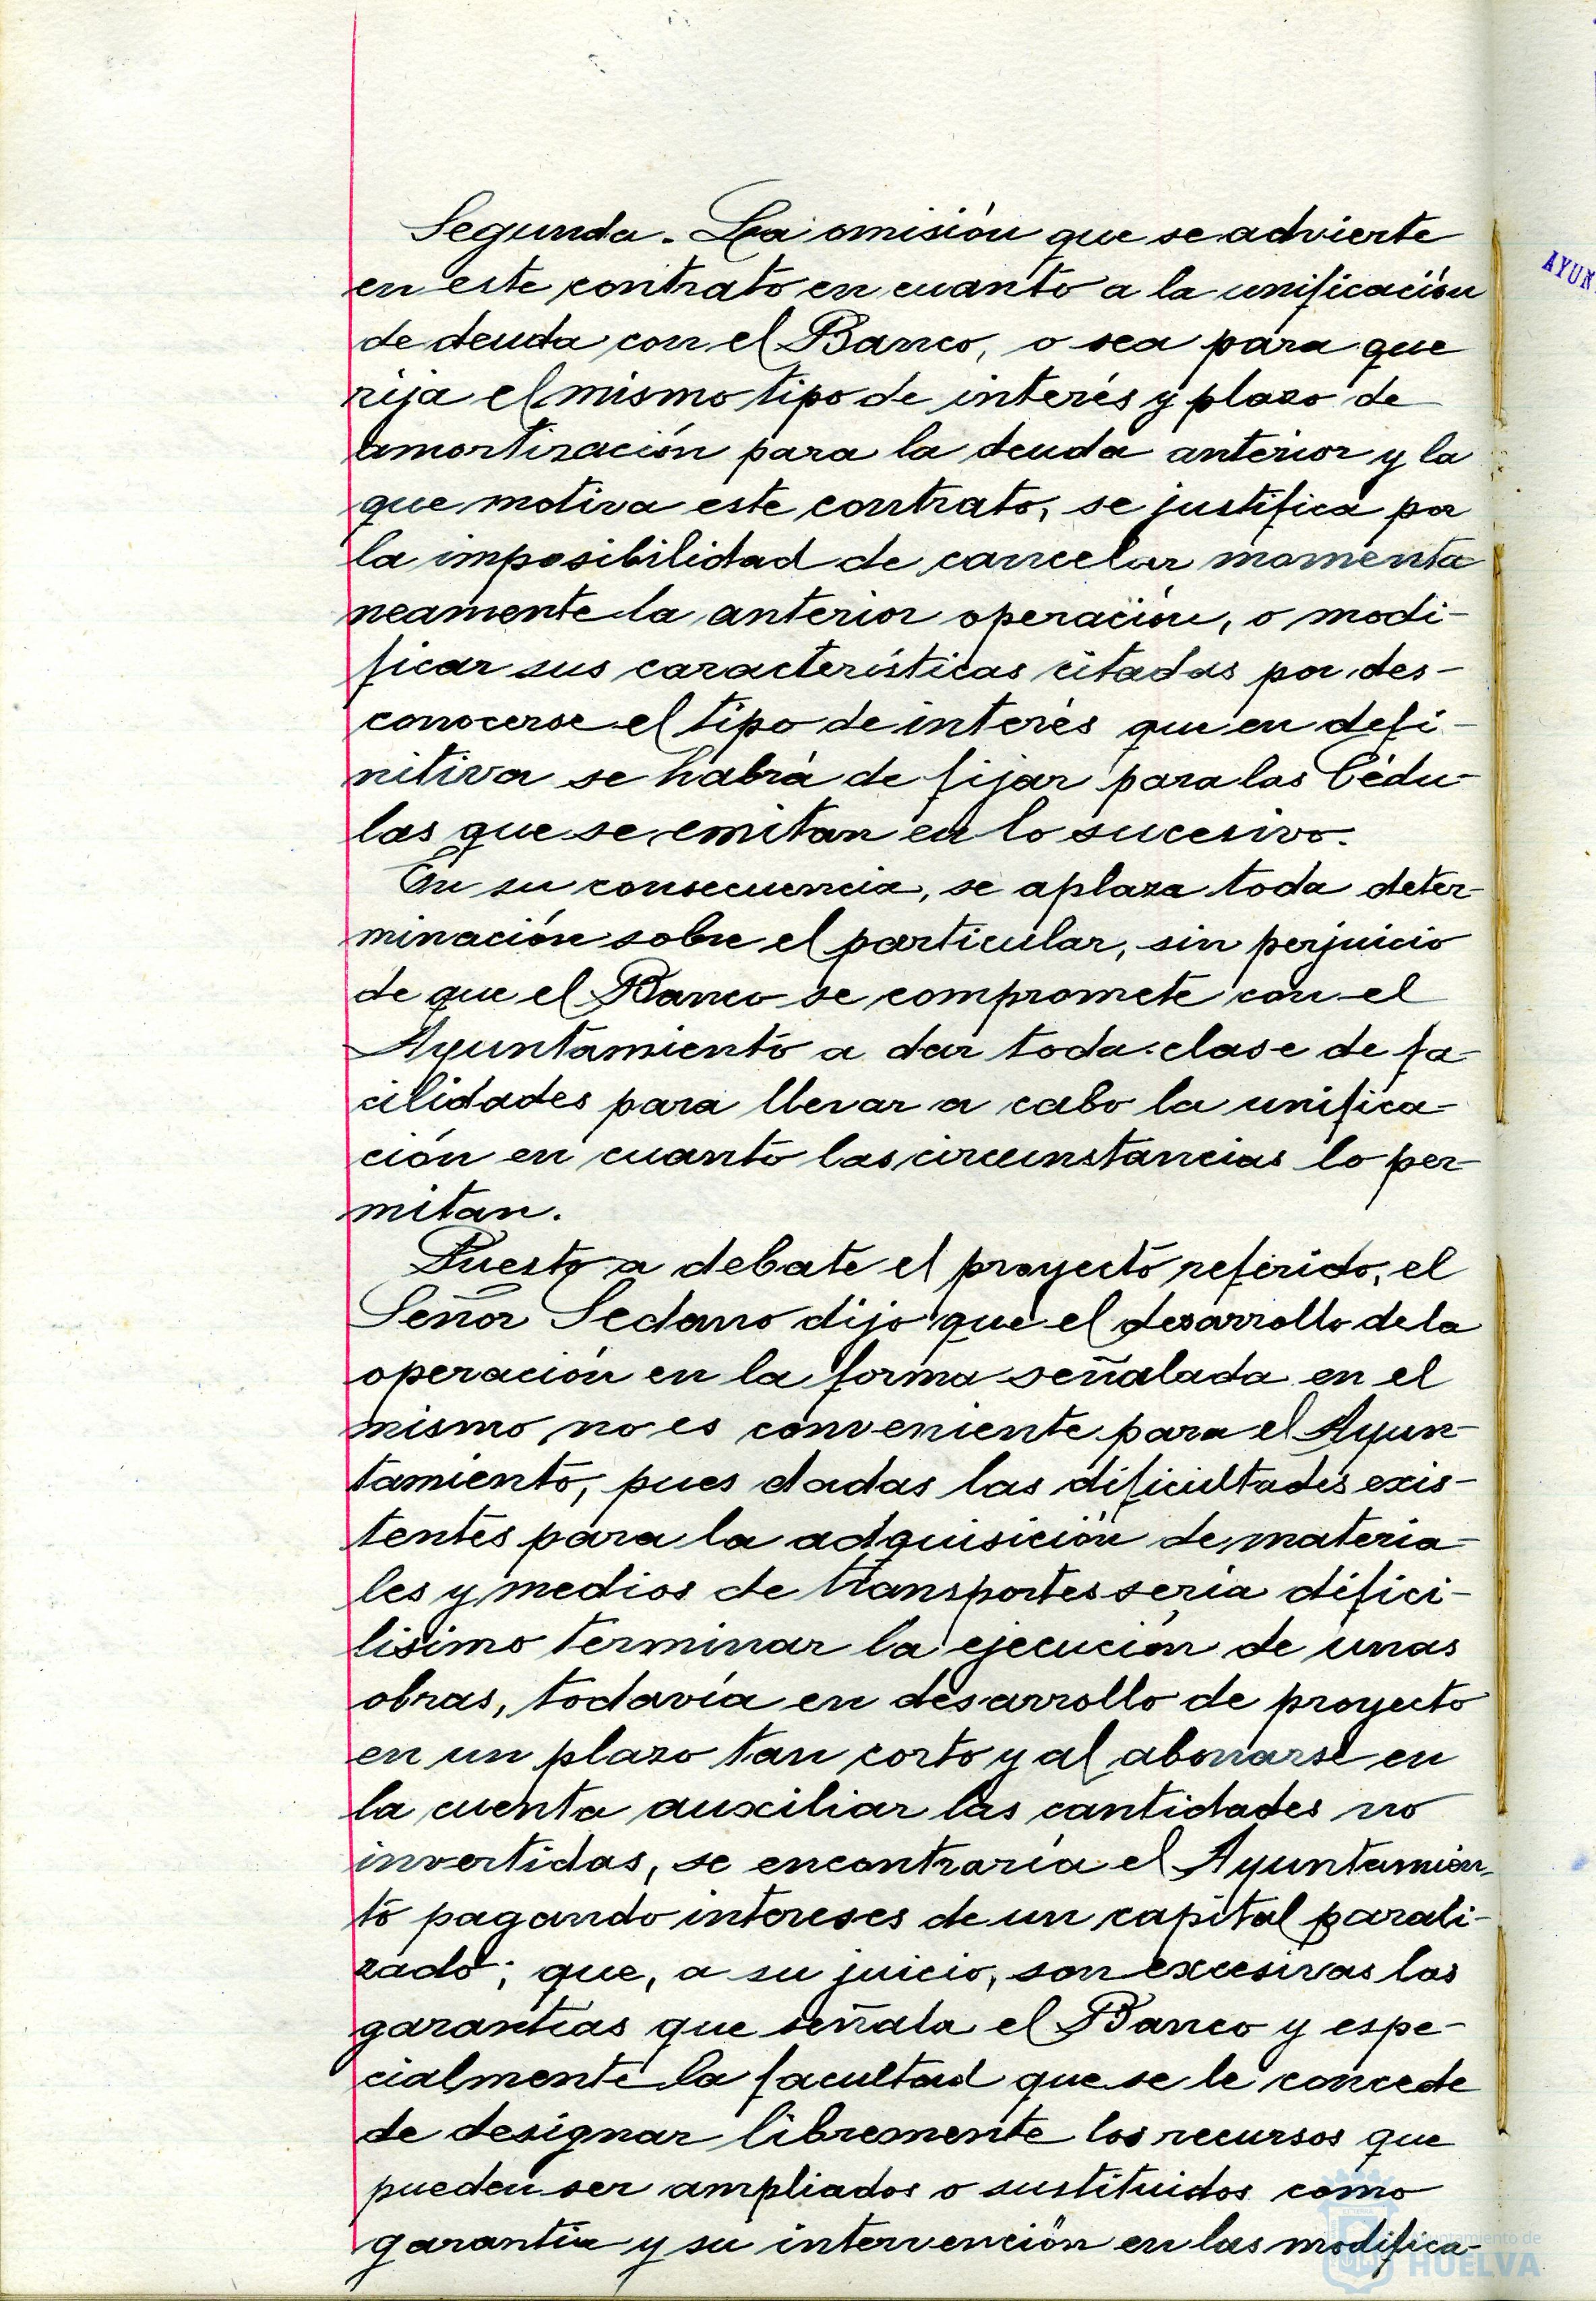 Segunda.- La omisión que se advierte
en este contrato en cuanto a la unificación
de deuda con el Banco, o sea para que
rija el mismo tipo de interés y plazo de
amortización para la deuda anterior y la
que motiva este contrato, se justifica por
la imposibilidad de cancelar momenta
neamente la anterior operación, o modi-
ficar sus características citadas por des-
conocerse el tipo de interés que en defi-
nitiva se habrá de fijar para las Cédu-
las que se emitan en lo sucesivo.
En su consecuencia, se aplaza toda deter-
minación sobre el particular, sin perjuicio
de que el Banco se compromete con el
Ayuntamiento a dar toda clase de fa-
cilidades para llevar a cabo la unifica-
ción en cuanto las circunstancias lo per-
mitan.
Puesto a debate el proyecto referido, el
Señor Sedano dijo que el desarrollo de la
operación en la forma señalada en el
mismo no es conveniente para el Ayun-
tamiento, pues dadas las dificultades exis-
tentes para la adquisición de materia-
les y medios de transportes sería difici-
lísimo terminar la ejecución de unas
obras, todavía en desarrollo de proyecto
en un plazo tan corto y al abonarse en
la cuenta auxiliar las cantidades no
invertidas, se encontraría el Ayuntamien-
to pagando intereses de un capital parali-
zado; que, a su juicio, son excesivas las
garantías que señala el Banco y espe-
cialmente la facultad que se le concede
de designar libremente los recursos que
pueden ser ampliados o sustituidos como
garantía y su intervención en las modifica-
AYUN
Ayuntamiento de
HUELVA